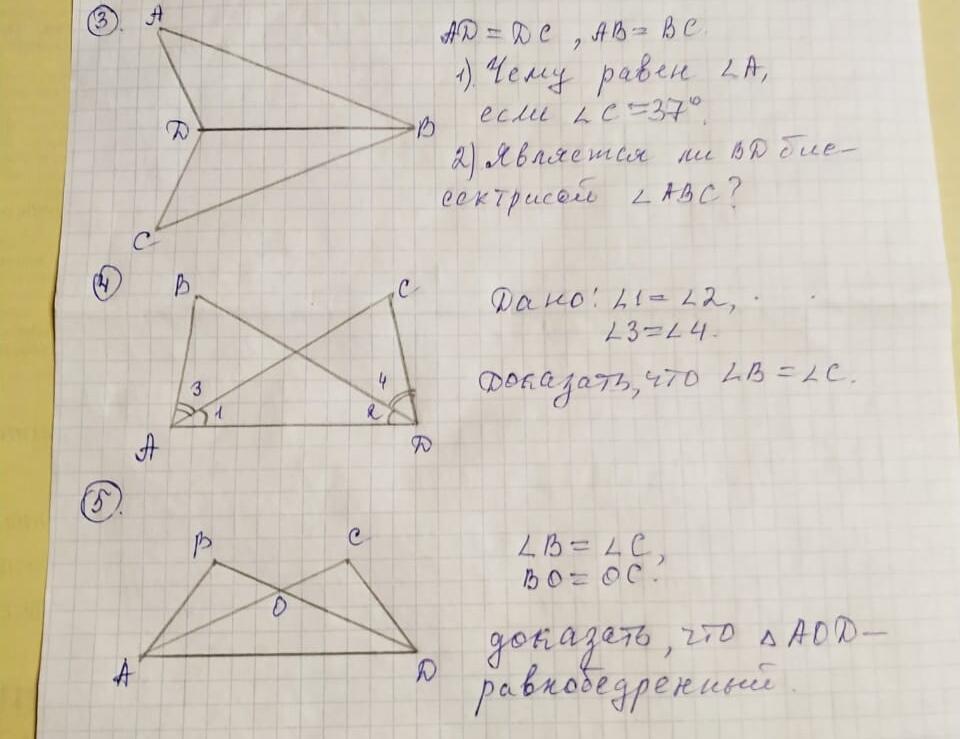 3.
A
D
B
C
AD = DC , AB = BC.
1). Чему равен ∠A,
если ∠C = 37°.
2) Является ли BD бис-
сектрисой ∠ABC?
4
B
C
3
4
1
2
A
D
Дано: ∠1 = ∠2,
∠3 = ∠4.
Доказать, что ∠B = ∠C.
5.
B
C
O
A
D
∠B = ∠C,
BO = OC.
доказать, что △AOD -
равнобедренный.